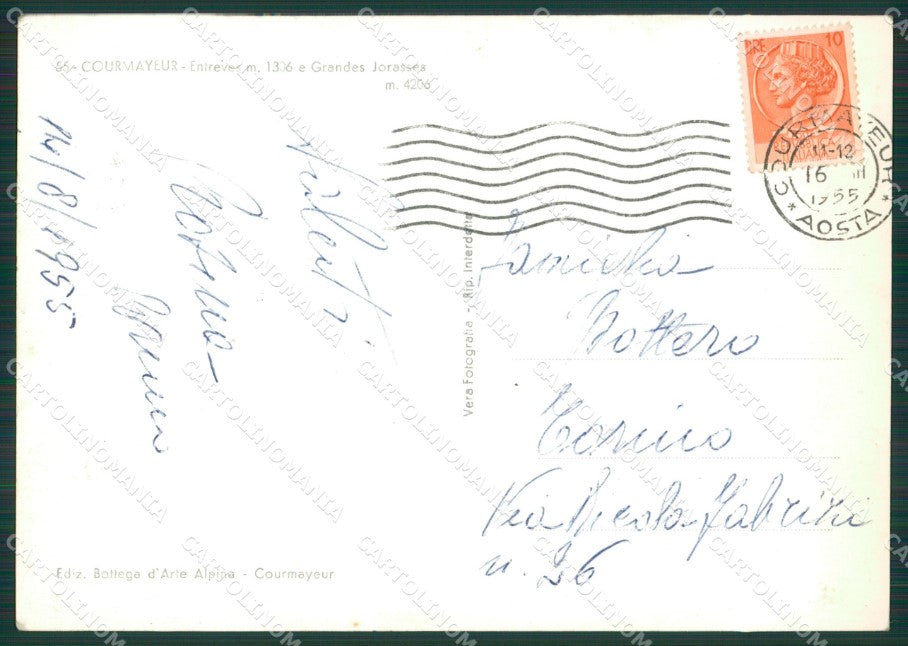 56 - COURMAYEUR - Entreves m. 1306 e Grandes Jorasses
m. 4206
14/8/1955
Saluti
Vera Fotografia - Rip. Interdetta
LIRE 10
COURMAYEUR
11-12
16
1955
* AOSTA *
Famiglia
Bottero
Torino
Via Nicola Fabrizi
n. 36
Ediz. Bottega d'Arte Alpina - Courmayeur
CARTOLINOMANIA